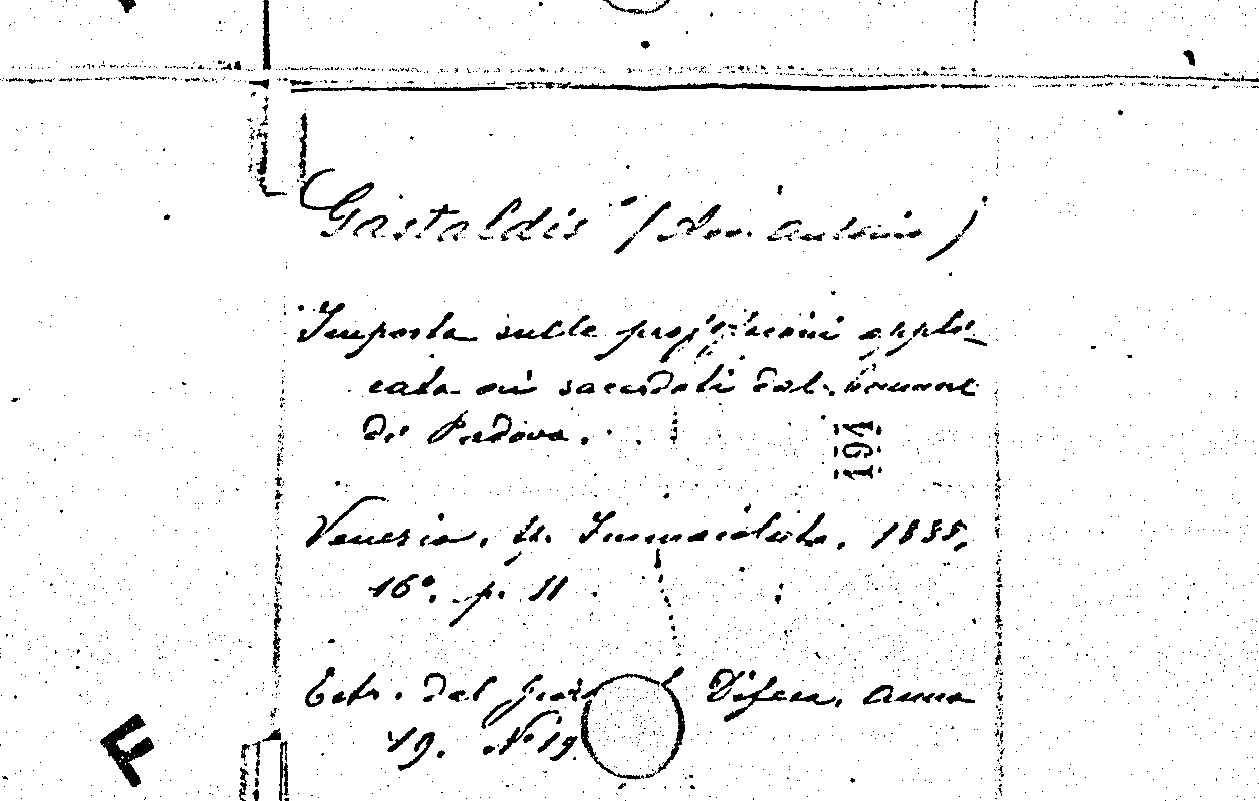 Gastaldis (Avv. Antonio)
Imposta sulle professioni appli-
cata ai sacerdoti dal Comune
di Padova.
194
Venezia, tp. Immacolata, 1885,
16°. p. 11
Estr. dal Difesa, anno
19. N° 19